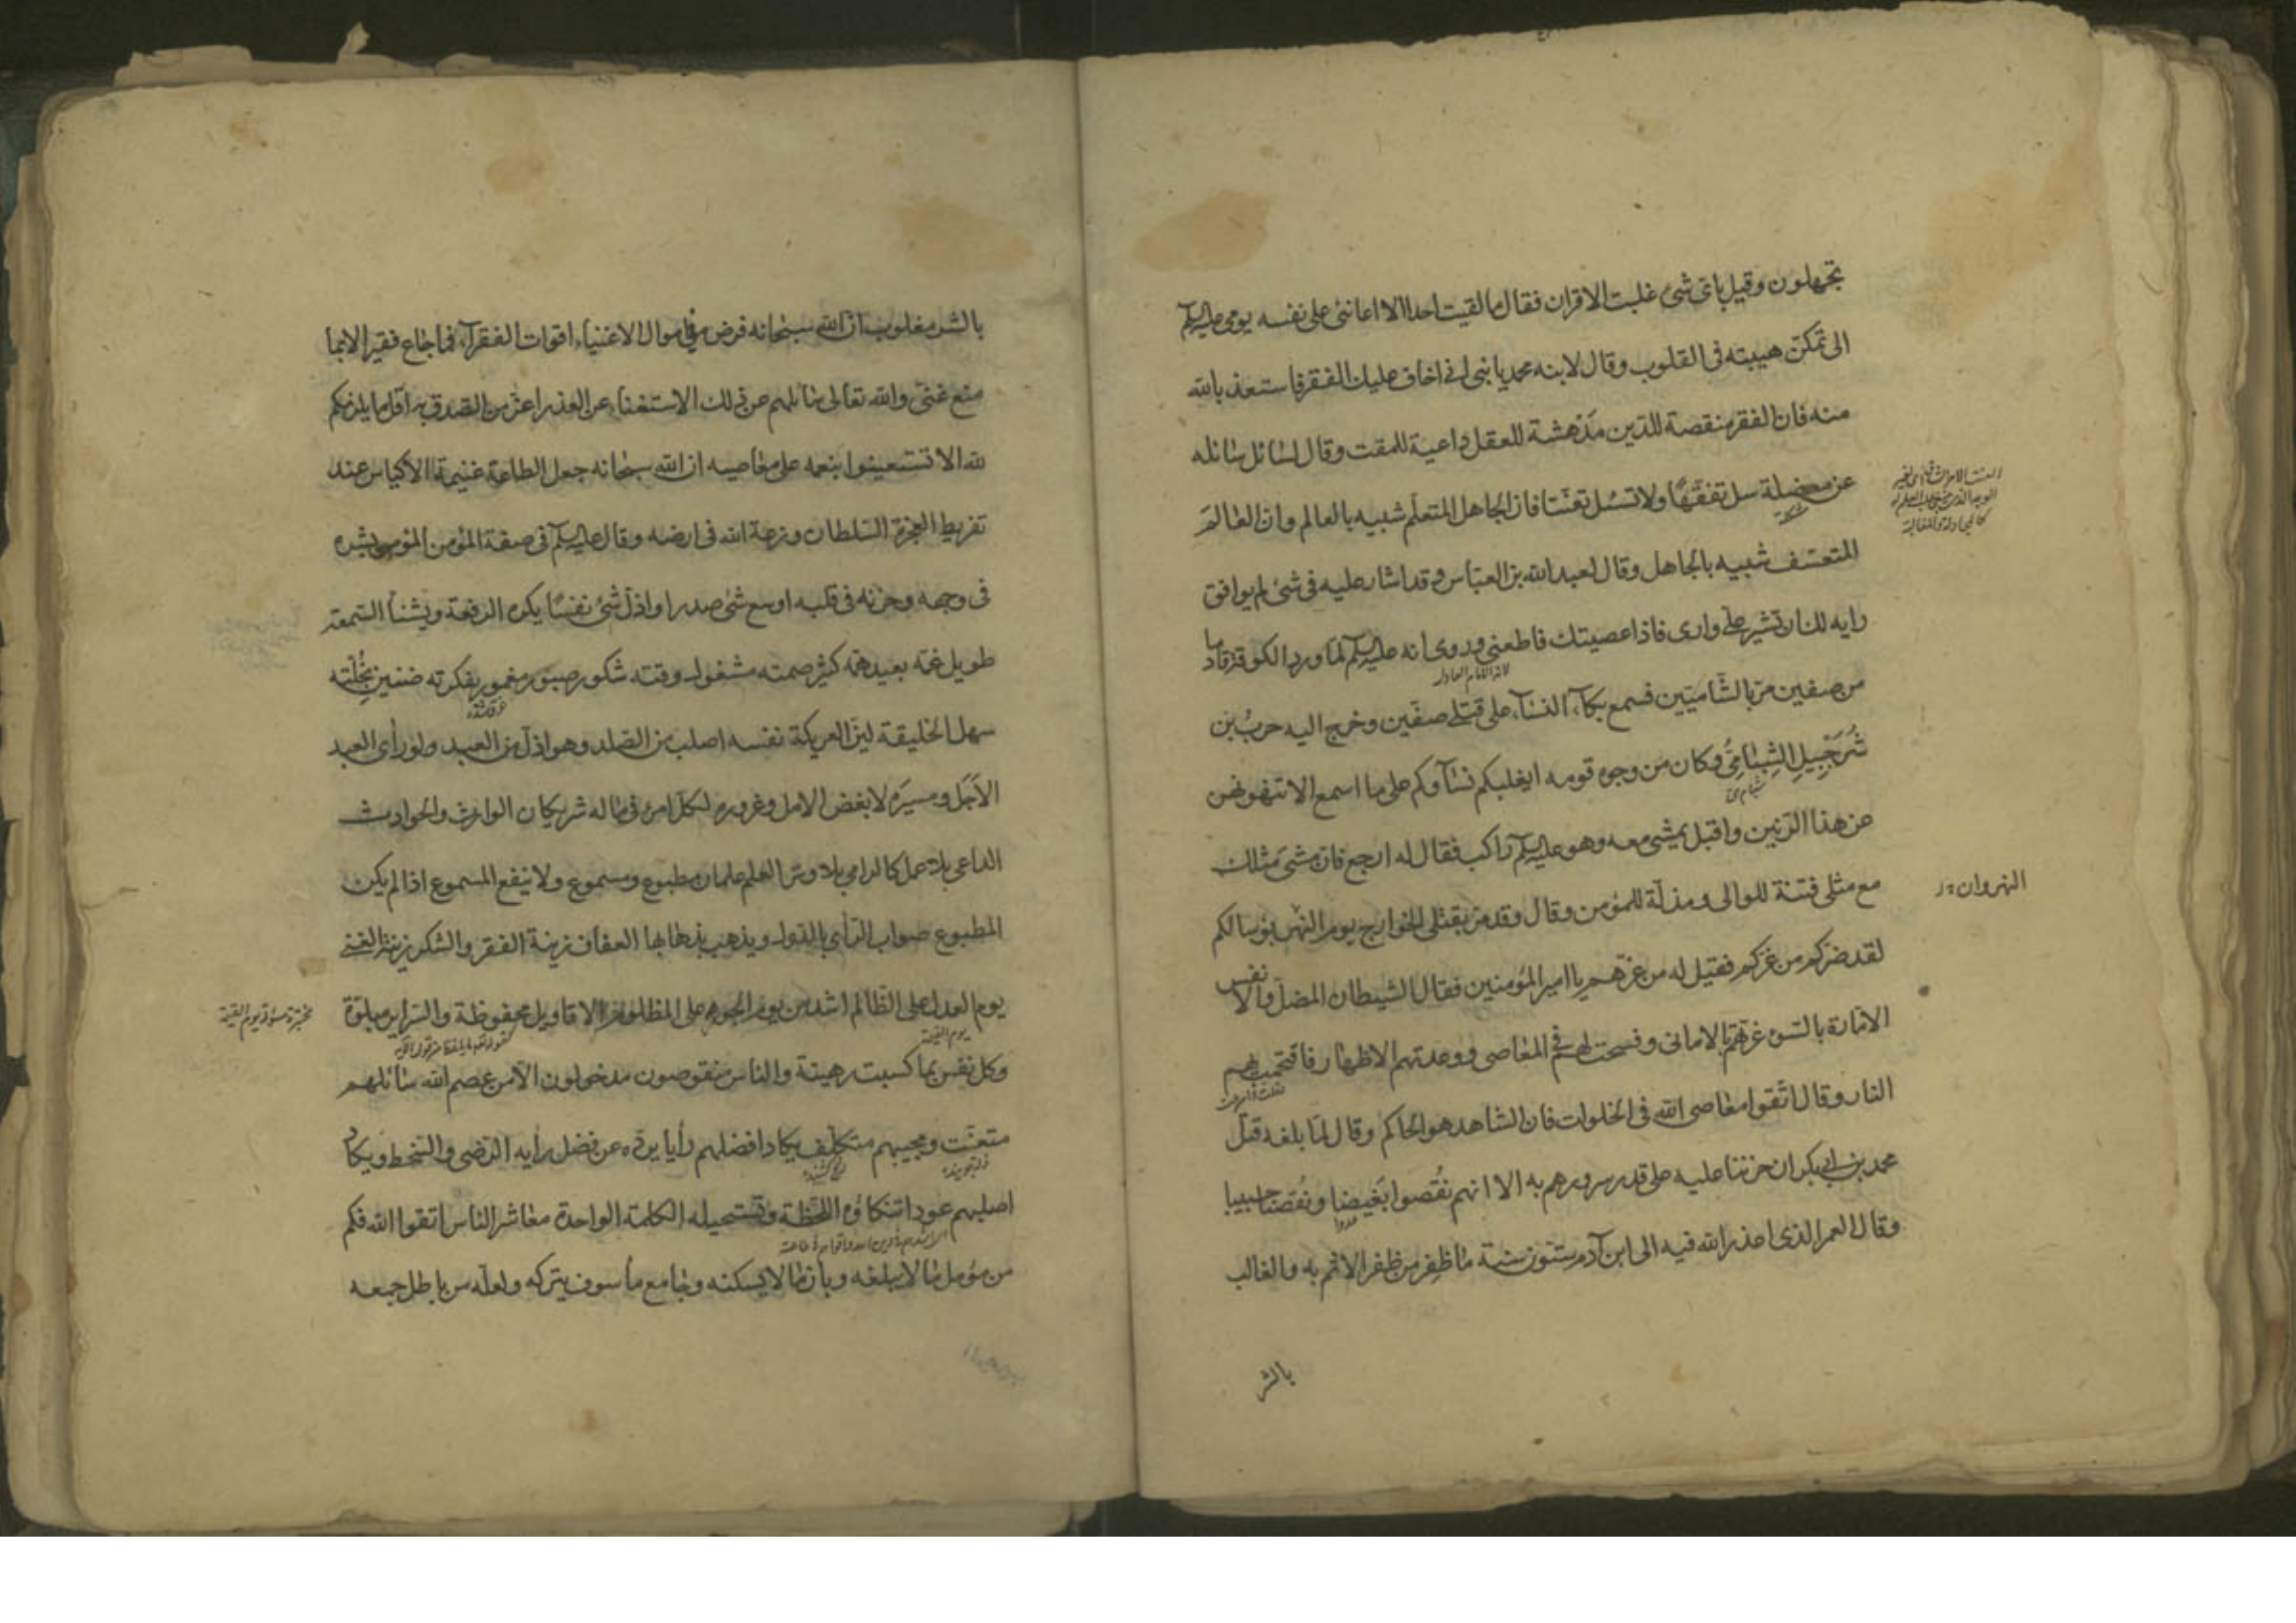 تجهلون وقيل بای شیء غلبت الاقران فقال ما لقيت احدا الا اعاننی علی نفسه يومی عليه السلم
الی تمكن هيبته فی القلوب وقال لابنه محمد يا بنی انی اخاف عليك الفقر فاستعذ بالله
منه فان الفقر منقصة للدين مدهشة للعقل داعية للمقت وقال لسائل سائله
عن معضلة سل تفقها ولا تسئل تعنتا فان الجاهل المتعلم شبيه بالعالم وان العالم
المتعسف شبيه بالجاهل وقال لعبد الله بن العباس وقد اشار عليه فی شیء لم يوافق
رايه لك ان تشير علی واری فاذا عصيتك فاطعنی وروی انه عليه السلم لما ورد الكوفة قادما
من صفين مر بالشاميين فسمع بكاء النساء علی قتلی صفين وخرج اليه حرب بن
شرحبيل الشبامی وكان من وجوه قومه ايغلبكم نساؤكم علی ما اسمع الا تنهونهن
عن هذا الرنين واقبل يمشی معه وهو عليه السلم راكب فقال له ارجع فان مشی مثلك
مع مثلی فتنة للوالی ومذلة للمؤمن وقال وقد مر بقتلی الخوارج يوم النهر بؤسا لكم
لقد ضركم من غركم فقيل له من غرهم يا امير المؤمنين فقال الشيطان المضل والانفس
الامارة بالسوء غرتهم بالامانی وفسحت لهم فی المعاصی ووعدتهم الاظهار فاقتحمت بهم
النار وقال اتقوا معاصی الله فی الخلوات فان الشاهد هو الحاكم وقال لما بلغه قتل
محمد بن ابی بكر ان حزننا عليه علی قدر سرورهم به الا انهم نقصوا بغيضا ونقصنا حبيبا
وقال العمر الذی اعذر الله فيه الی ابن آدم ستون سنة ما ظفر من ظفر الاثم به والغالب
بالشر
النهروان
شبامی
بالشر مغلوب ان الله سبحانه فرض فی اموال الاغنياء اقوات الفقراء فما جاع فقير الا بما
منع غنی والله تعالی سائلهم عن ذلك الاستغناء عن العذر اعز من الصدق به اقل ما يلزمكم
لله الا تستعينوا بنعمه علی معاصيه ان الله سبحانه جعل الطاعة غنيمة الاكياس عند
تفريط العجزة السلطان وزعة الله فی ارضه وقال عليه السلم فی صفة المؤمن المؤمن بشره
فی وجهه وحزنه فی قلبه اوسع شیء صدرا واذل شیء نفسا يكره الرفعة ويشنأ السمعة
طويل غمه بعيد همه كثير صمته مشغول وقته شكور صبور مغمور بفكرته ضنين بخلته
سهل الخليقة لين العريكة نفسه اصلب من الصلد وهو اذل من العبد ولو رأی العبد
الاجل ومسيره لابغض الامل وغروره لكل امرئ فی ماله شريكان الوارث والحوادث
الداعی بلا عمل كالرامی بلا وتر العلم علمان مطبوع ومسموع ولا ينفع المسموع اذا لم يكن
المطبوع صواب الرأی بالدول ويذهب بذهابها العفاف زينة الفقر والشكر زينة الغنی
يوم العدل علی الظالم اشد من يوم الجور علی المظلوم الاقاويل محفوظة والسراير مبلوة
وكل نفس بما كسبت رهينة والناس منقوصون مدخولون الا من عصم الله سائلهم
متعنت ومجيبهم متكلف يكاد افضلهم رأيا يرده عن فضل رايه الرضی والسخط ويكاد
اصلبهم عودا تنكاؤه اللحظة وتستحيله الكلمة الواحدة معاشر الناس اتقوا الله فكم
من مؤمل ما لا يبلغه وبان ما لا يسكنه وجامع ما سوف يتركه ولعله من باطل جمعه
يوم القيمة